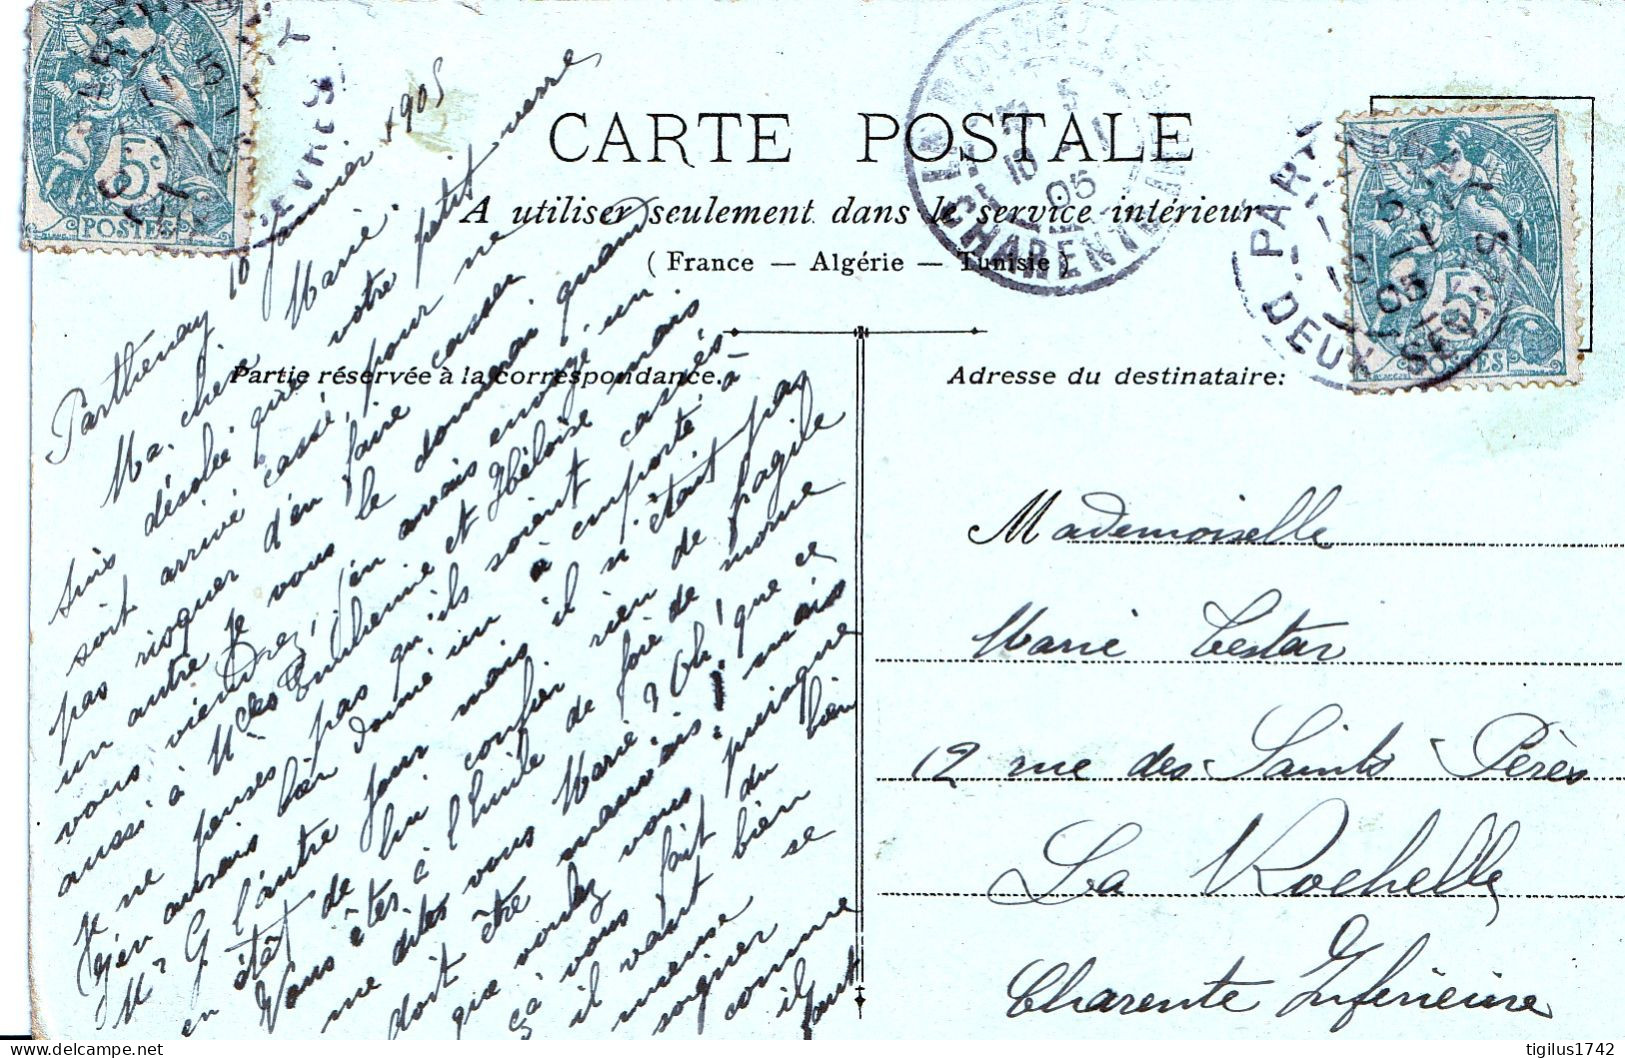 CARTE POSTALE
A utiliser seulement dans le service intérieur
( France — Algérie — Tunisie )
Partie réservée à la correspondance.
Adresse du destinataire:
Parthenay 10 janvier 1905
Ma chère Marie.
Suis désolée que votre petit verre
soit arrivé cassé, pour ne
pas risquer d'en faire casser
un autre je vous le donnerai quand
vous viendrez, j'en avais envoyé un
aussi à Mlles Euphémie et Héloïse mais
je ne penses pas qu'ils soient cassés
j'en aurais bien donné un à emporté à
Mr G. l'autre jour mais il n'était pas
en état de lui confier rien de fragile
Vous êtes à l'huile de foie de morue
me dites vous Marie? Oh! que ce
doit être mauvais! mais
que voulez vous puisque
ça vous fait du bien
il vaut bien
mieux se
soigner comme
il faut
Mademoiselle
Marie Testar
12 rue des Saints-Pères
La Rochelle
Charente Inférieure
5c
POSTES
5c
POSTES
LA ROCHELLE
10
05
CHARENTE
PARTHENAY
05
DEUX SEVRES
SEVRES
tigilus1742